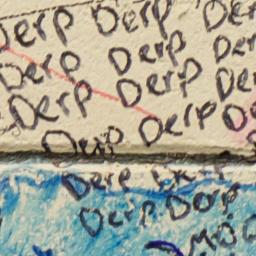 Derp Derp Der
Derp Derp Der
Derp Derp De
Derp Derp De
Derp
Derp Derp